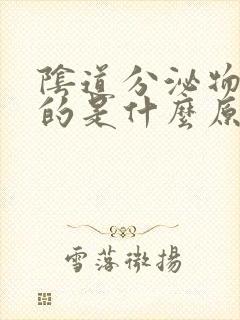 陰道分泌物
的是什麼原
雪落微揚